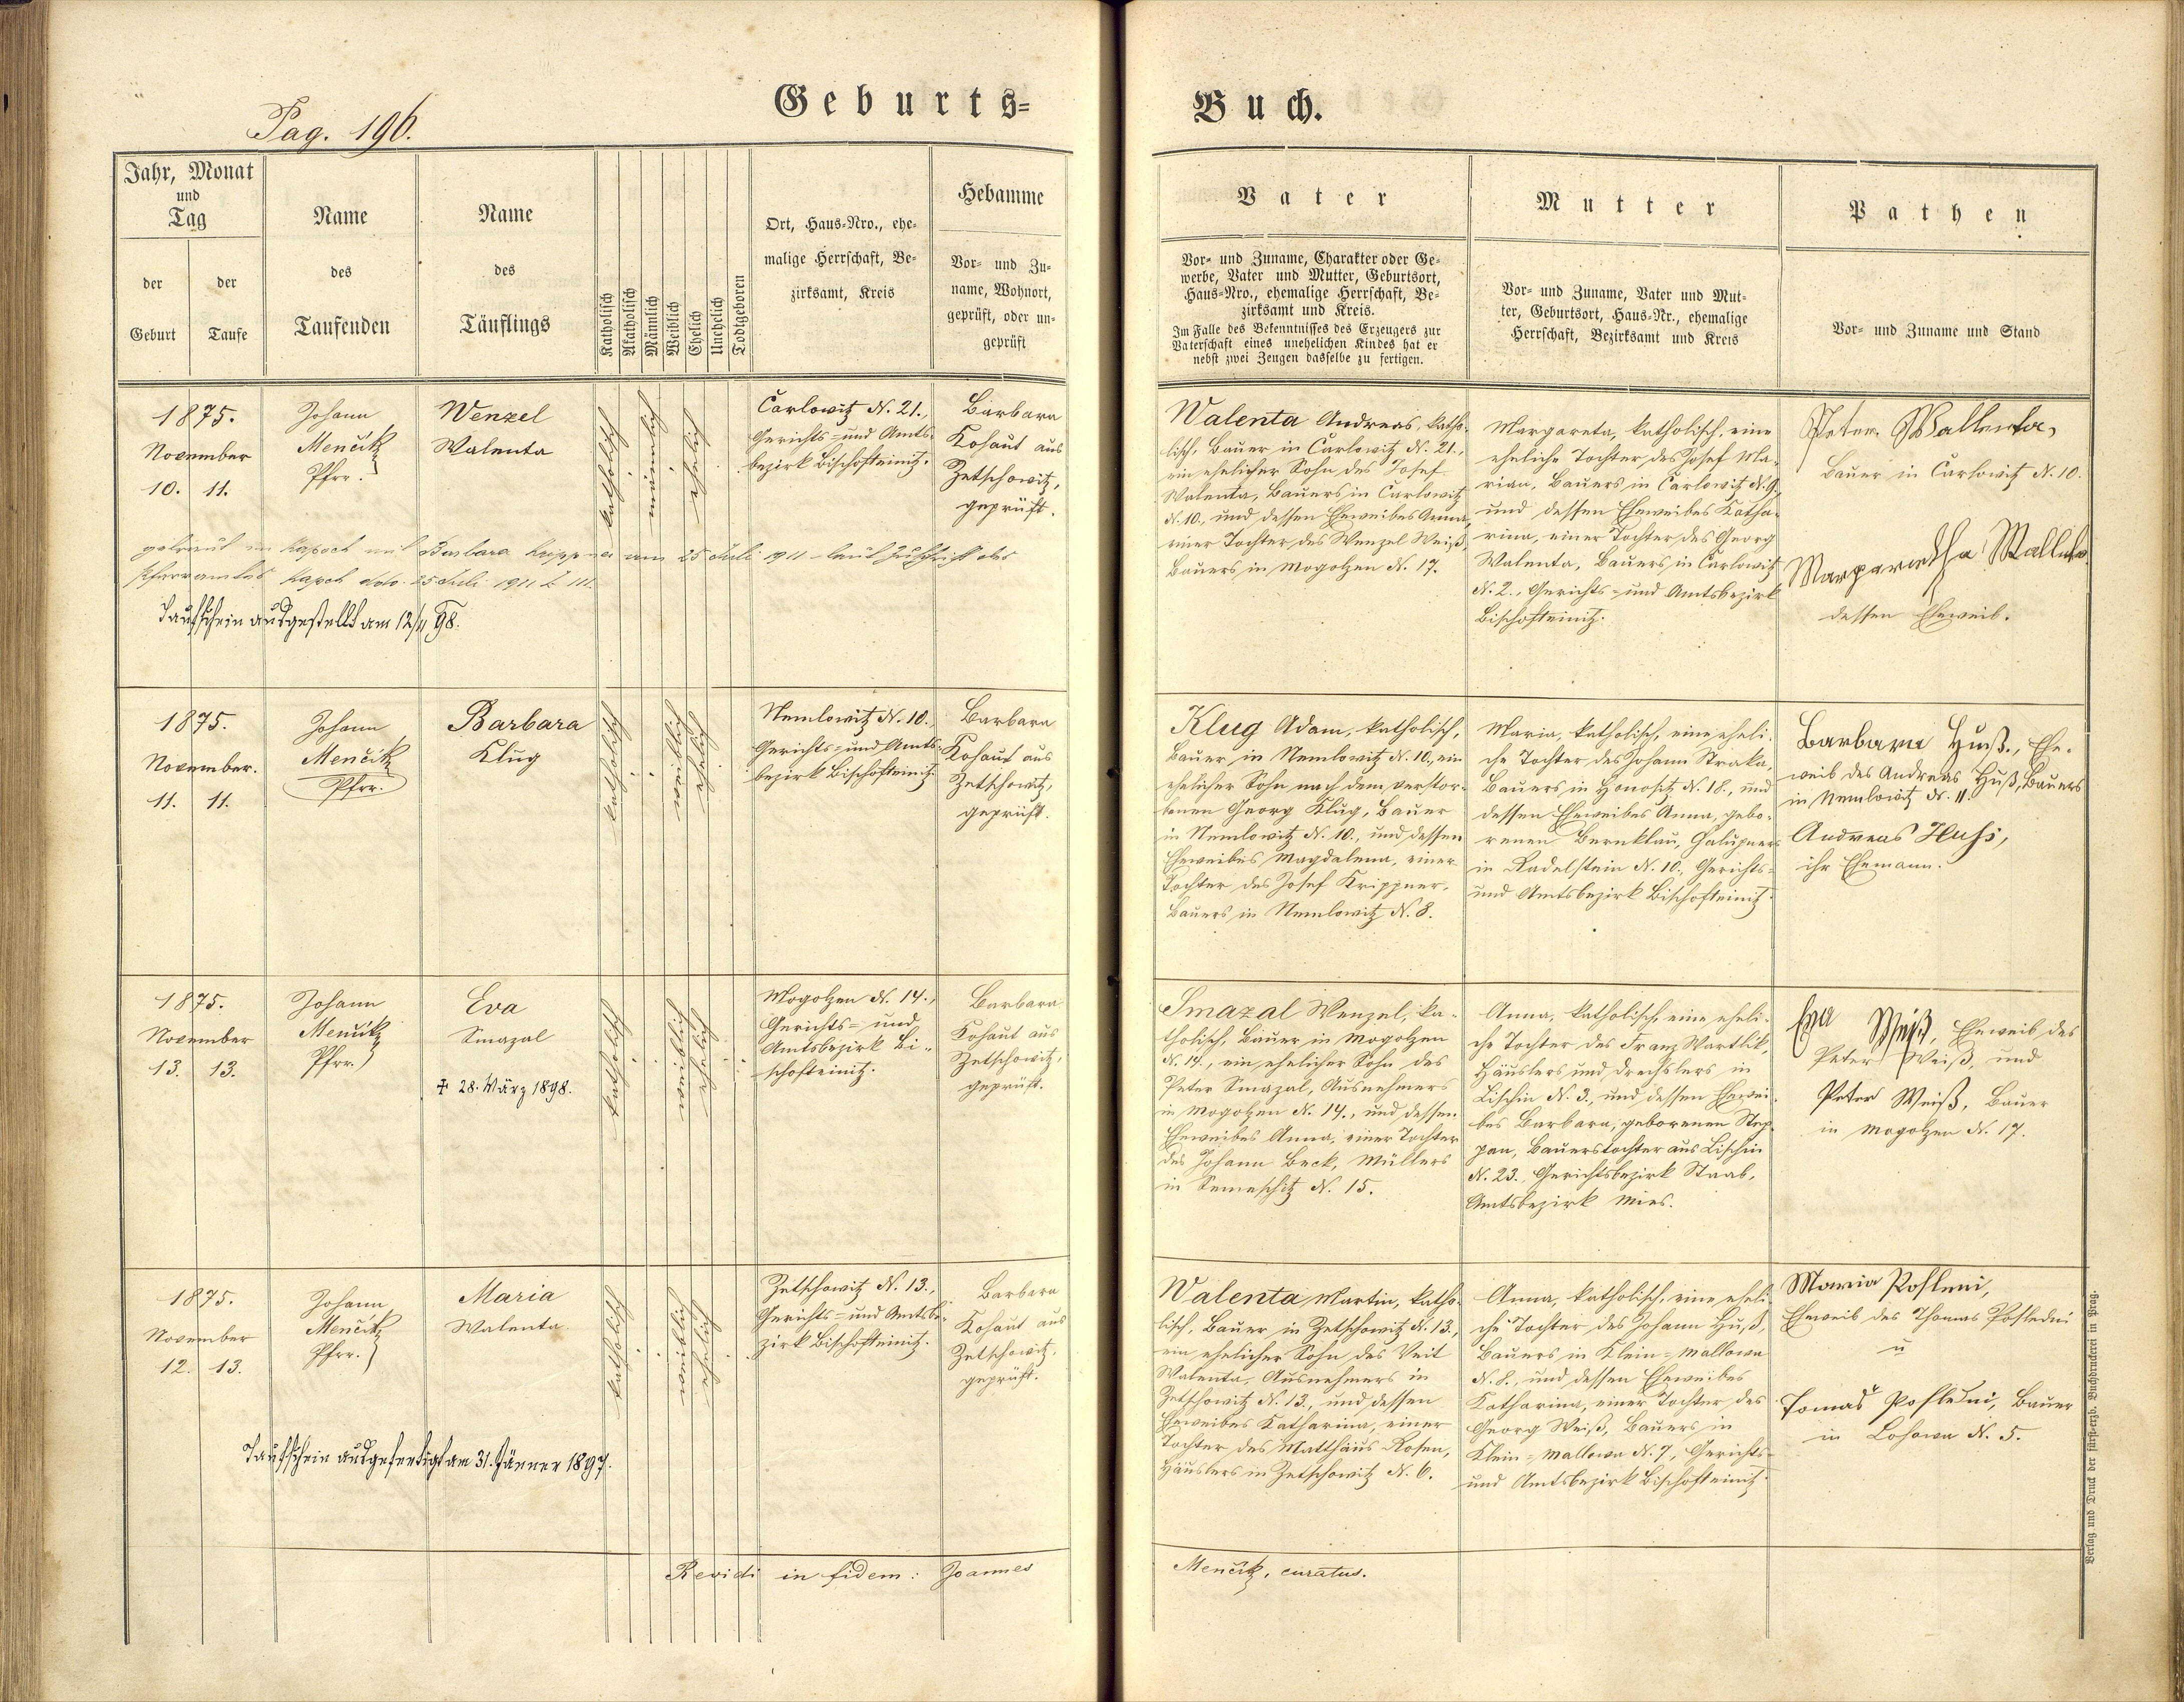 Geburts=
Buch.
Pag. 196.
Jahr, Monat
und
Tag
der
Geburt
der
Taufe
Name
des
Taufenden
Name
des
Täuflings
Katholisch
Akatholisch
Männlich
Weiblich
Ehelich
Unehelich
Todtgeboren
Ort, Haus=Nro., ehe=
malige Herrschaft, Be=
zirksamt, Kreis
Hebamme
Vor= und Zu=
name, Wohnort,
geprüft, oder un=
geprüft
Vater
Vor= und Zuname, Charakter oder Ge=
werbe, Vater und Mutter, Geburtsort,
Haus=Nro., ehemalige Herrschaft, Be=
zirksamt und Kreis.
Im Falle des Bekenntnisses des Erzeugers zur
Vaterschaft eines unehelichen Kindes hat er
nebst zwei Zeugen dasselbe zu fertigen.
Mutter
Vor= und Zuname, Vater und Mut=
ter, Geburtsort, Haus=Nr., ehemalige
Herrschaft, Bezirksamt und Kreis
Pathen
Vor= und Zuname und Stand
1875.
November
10. 11.
Johann
Menčik
Pfrr.
Wenzel
Walenta
katholisch
männlich
ehelich
Carlowitz N. 21.,
Gerichts= und Amts=
bezirk Bischofteinitz.
Barbara
Kohaut aus
Zetschowitz,
geprüft.
getraut in Kapsch mit Barbara Krippner am 25 Juli 1911 laut Zuschrift des
Pfarramtes Kapsch ddo. 25 Juli 1911 Z 111.
Taufschein ausgestellt am 12/11 98.
Walenta Andreas, katho=
lisch, Bauer in Carlowitz N. 21.,
ein ehelicher Sohn des Josef
Walenta, Bauers in Carlowitz
N. 10., und dessen Eheweibes Anna,
einer Tochter des Wenzel Weiß,
Bauers in Mogolzen N. 17.
Margareta, katholisch, eine
eheliche Tochter des Josef Ma=
rian, Bauers in Carlowitz N. 9.,
und dessen Eheweibes Katha=
rina, einer Tochter des Georg
Walenta, Bauers in Carlowitz
N. 2., Gerichts= und Amtsbezirk
Bischofteinitz.
Peter Wallenta,
Bauer in Carlowitz N. 10.
Margaretha Wallenta
dessen Eheweib.
1875.
November.
11. 11.
Johann
Menčik
Pfrr.
Barbara
Klug
katholisch
weiblich
ehelich
Nemlowitz N. 10.,
Gerichts= und Amts=
bezirk Bischofteinitz.
Barbara
Kohaut aus
Zetschowitz,
geprüft.
Klug Adam, katholisch,
Bauer in Nemlowitz N. 10., ein
ehelicher Sohn nach dem verstor=
benen Georg Klug, Bauer
in Nemlowitz N. 10., und dessen
Eheweibes Magdalena, einer
Tochter des Josef Krippner,
Bauers in Nemlowitz N. 8.
Maria, katholisch, eine eheli=
che Tochter des Johann Straka,
Bauers in Honositz N. 18., und
dessen Eheweibes Anna, gebo=
renen Bernklau, Halupners
in Radelstein N. 10., Gerichts=
und Amtsbezirk Bischofteinitz.
Barbara Huß., Ehe=
weib des Andreas Huß, Bauers
in Nemlowitz N. 11.
Andreas Huß,
ihr Ehemann.
1875.
November
13. 13.
Johann
Menčik
Pfrr.
Eva
Smazal
✝ 28. März 1898.
katholisch
weiblich
ehelich
Mogolzen N. 14.,
Gerichts= und
Amtsbezirk Bi=
schofteinitz.
Barbara
Kohaut aus
Zetschowitz,
geprüft.
Smazal Wenzel, ka=
tholisch, Bauer in Mogolzen
N. 14., ein ehelicher Sohn des
Peter Smazal, Ausnehmers
in Mogolzen N. 14., und dessen
Eheweibes Anna, einer Tochter
des Johann Beck, Müllers
in Semeschitz N. 15.
Anna, katholisch, eine eheli=
che Tochter des Franz Wartlik,
Häuslers und Drechslers in
Lischin N. 3., und dessen Ehewei=
bes Barbara, geborenen Step=
pan, Bauerstochter aus Lischin
N. 23., Gerichtsbezirk Staab,
Amtsbezirk Mies.
Eva Weiß, Eheweib des
Peter Weiß, und
Peter Weiß, Bauer
in Mogolzen N. 17.
1875.
November
12. 13.
Johann
Menčik
Pfrr.
Maria
Walenta.
katholisch
weiblich
ehelich
Zetschowitz N. 13.,
Gerichts= und Amtsbe=
zirk Bischofteinitz.
Barbara
Kohaut aus
Zetschowitz,
geprüft.
Taufschein ausgefertigt am 31. Jänner 1897.
Walenta Martin, katho=
lisch, Bauer in Zetschowitz N. 13.,
ein ehelicher Sohn des Veit
Walenta, Ausnehmers in
Zetschowitz N. 13., und dessen
Eheweibes Katharina, einer
Tochter des Matthäus Rosen,
Häuslers in Zetschowitz N. 6.
Anna, katholisch, eine eheli=
che Tochter des Johann Huß,
Bauers in Klein=Mallowa
N. 8., und dessen Eheweibes
Katharina, einer Tochter des
Georg Weiß, Bauers in
Klein=Mallowa N. 7, Gerichts=
und Amtsbezirk Bischofteinitz.
Maria Posleni,
Eheweib des Thomas Posledni
u
Tomas Posleni, Bauer
in Lohowa N. 5.
Revidi in fidem: Joannes
Menčik, curatus.
Verlag und Druck der fürsterzb. Buchdruckerei in Prag.